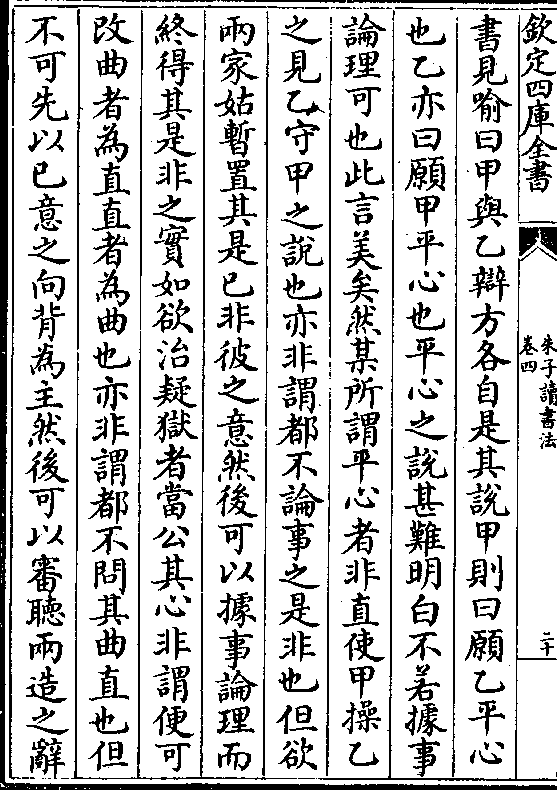 欽定四庫全書
朱子讀書法
卷四
二十
書見喻曰甲與乙辯方各自是其說甲則曰願乙平心
也乙亦曰願甲平心也平心之說甚難明白不若據事
論理可也此言美矣然某所謂平心者非直使甲操乙
之見乙守甲之說也亦非謂都不論事之是非也但欲
兩家姑暫置其是已非彼之意然後可以據事論理而
終得其是非之實如欲治疑獄者當公其心非謂便可
改曲者為直直者為曲也亦非謂都不問其曲直也但
不可先以已意之向背為主然後可以審聽兩造之辭